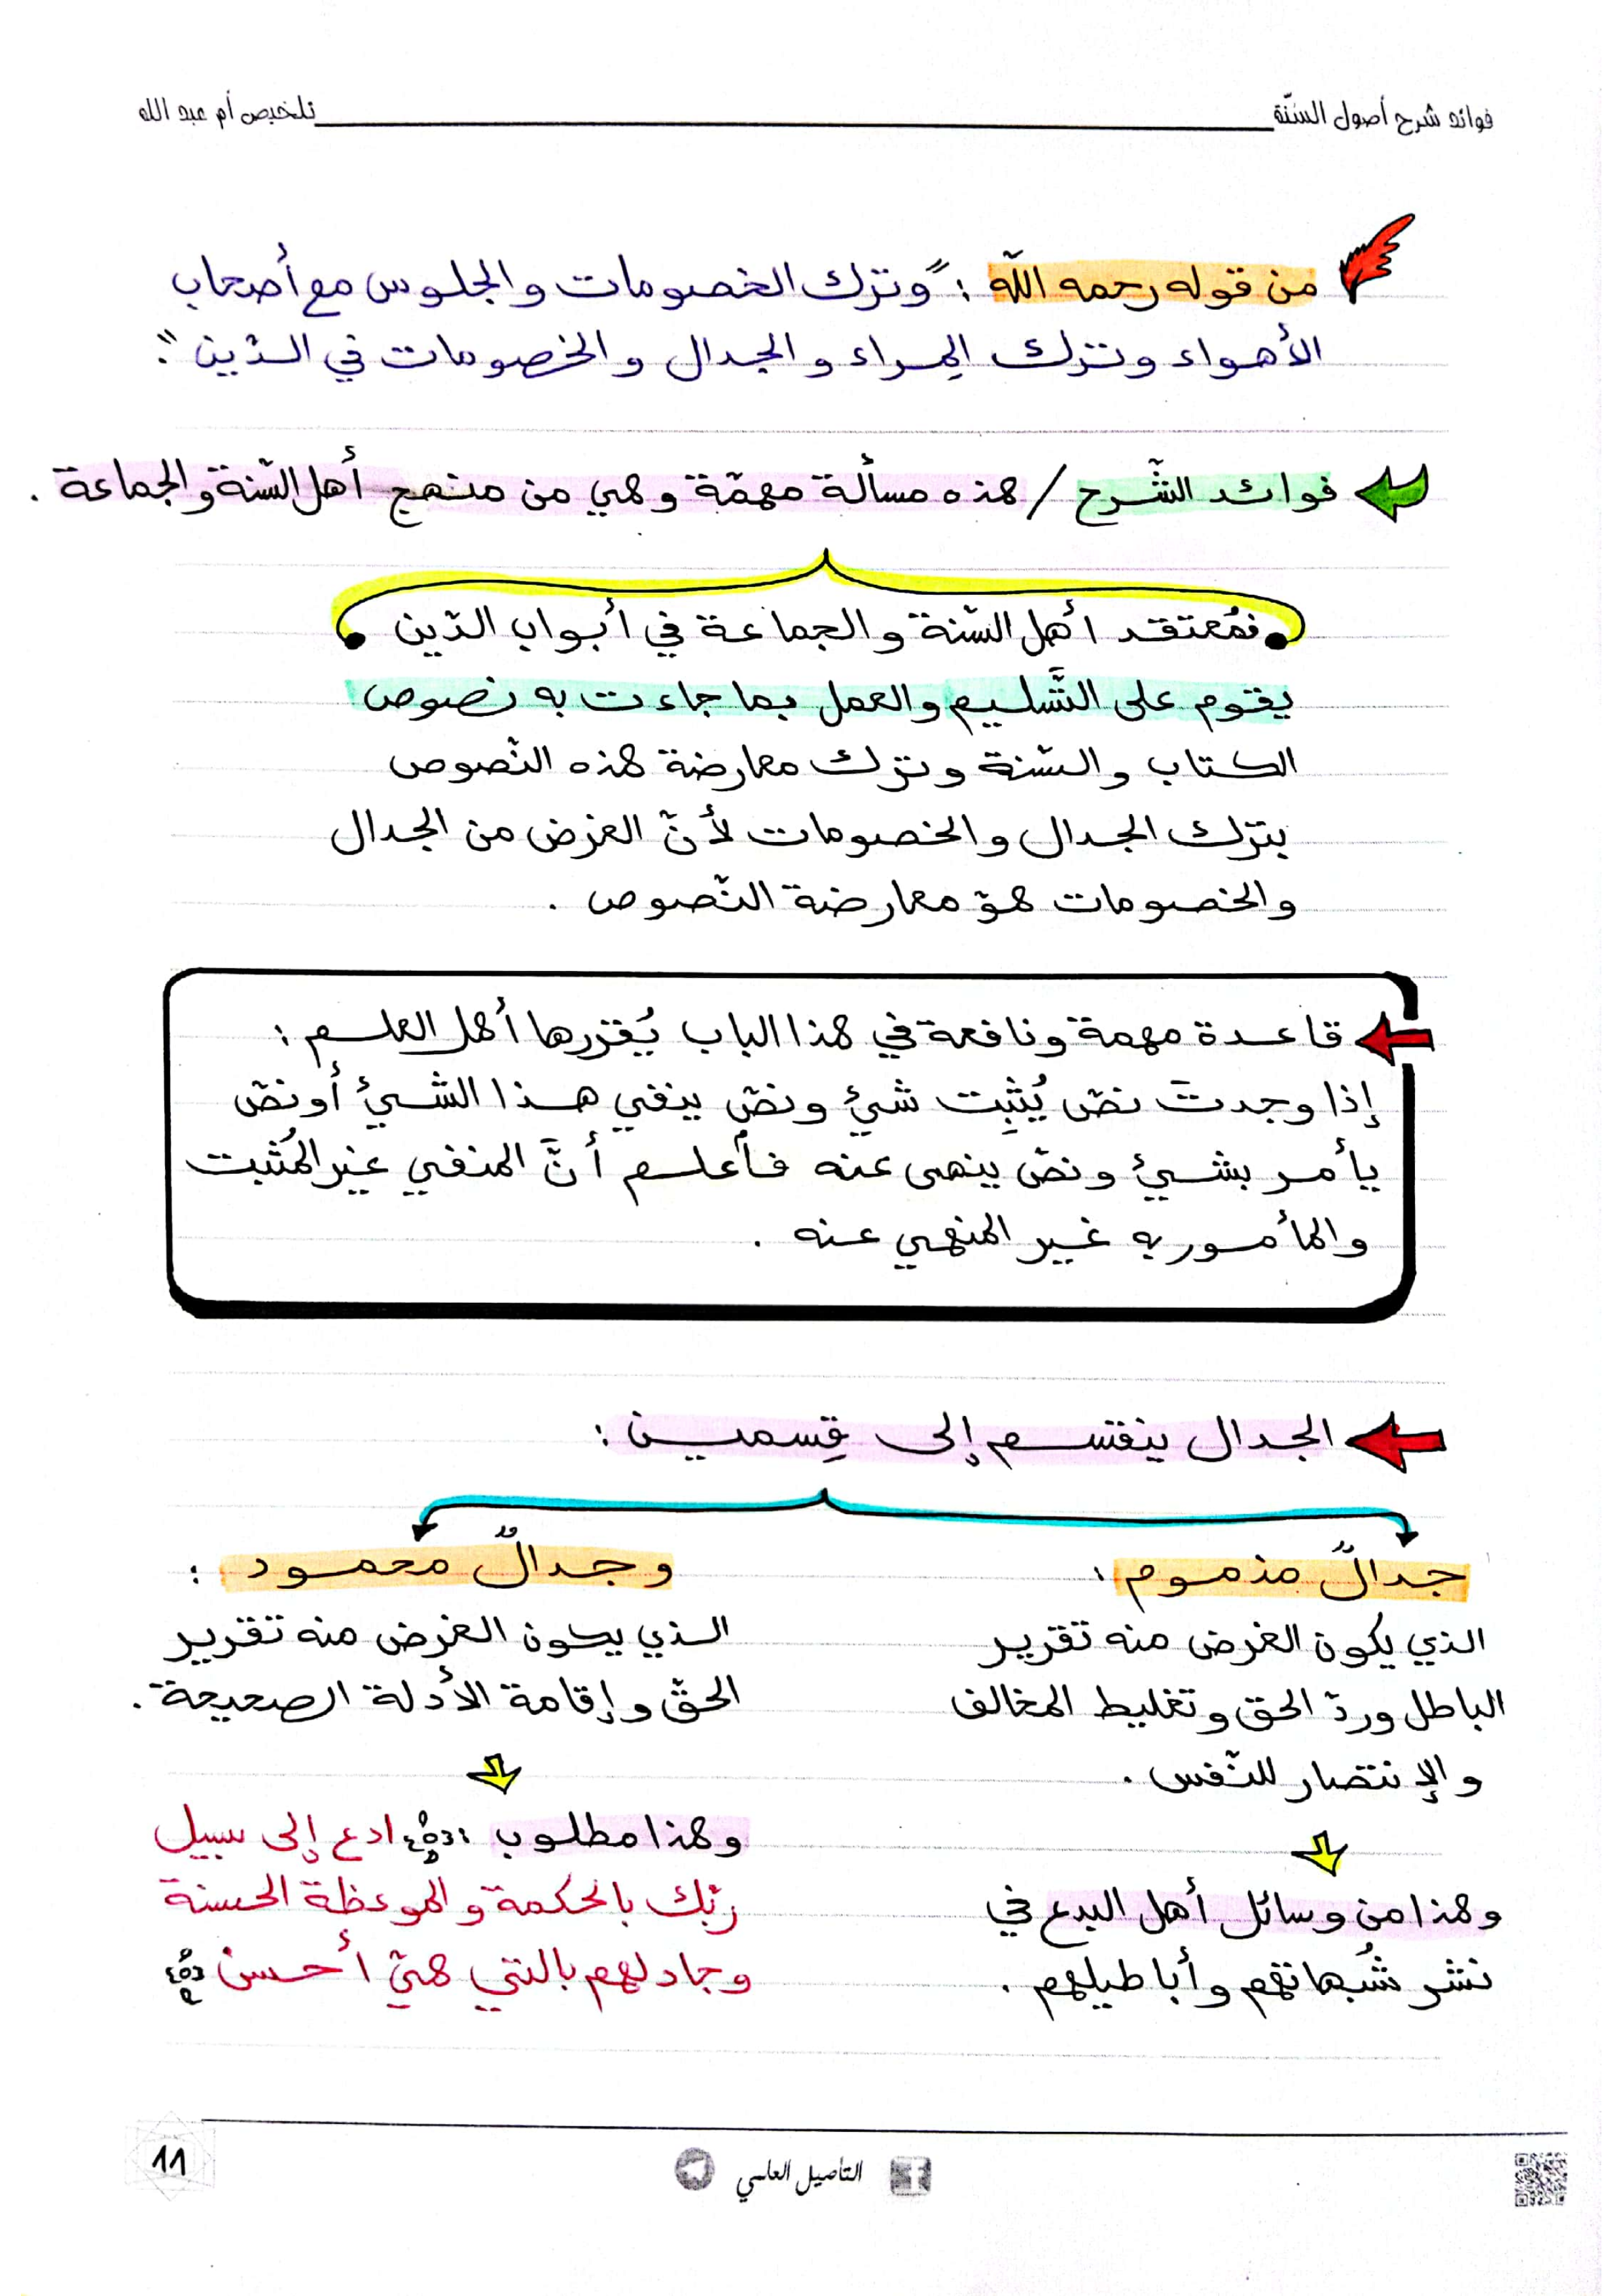 فوائد شرح أصول السّنّة تلخيص أم عبد الله
من قوله رحمه اللّه : "وترك الخصومات والجلوس مع أصحاب
الأهواء وترك المِراء والجدال والخصومات في الدّين".
فوائد الشّرح / هذه مسألة مهمّة وهي من منهج أهل السّنة والجماعة .
فمُعتقد أهل السّنة والجماعة في أبواب الدّين
يقوم على التّسليم والعمل بما جاءت به نصوص
الكتاب والسّنة وترك معارضة هذه النّصوص
بترك الجدال والخصومات لأنّ الغرض من الجدال
والخصومات هوّ معارضة النّصوص .
قاعدة مهمة ونافعة في هذا الباب يُقررها أهل العلم :
إذا وجدتَ نصّ يُثبِت شيئ ونصّ ينفي هذا الشيئ أو نصّ
يأمر بشيئ ونصّ ينهى عنه فأعلم أنَّ المنفي غير المُثبت
والمأمور به غير المنهي عنه .
الجدال ينقسم إلى قِسمين :
جدالٌ مذموم :
الذي يكون الغرض منه تقرير
الباطل وردّ الحق وتغليط المخالف
والإنتصار للنّفس .
وهذا من وسائل أهل البدع في
نشر شُبهاتهم وأباطيلهم .
وجدالٌ محمود :
الذي يكون الغرض منه تقرير
الحقّ وإقامة الأدلة الصحيحة .
وهذا مطلوب : ﴿ ادع إلى سبيل
ربّك بالحكمة والموعظة الحسنة
وجادلهم بالتي هيّ أحسن ﴾
التأصيل العلمي
11